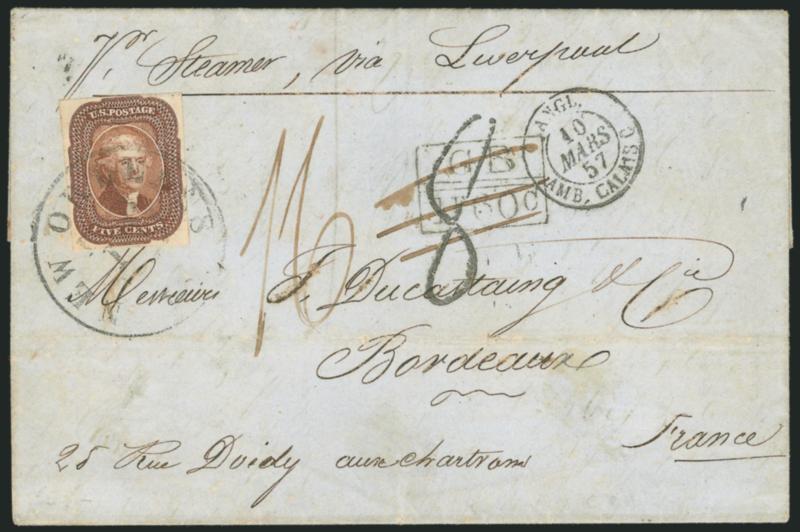 Pr Steamer, via Liverpool
U.S. POSTAGE
FIVE CENTS
NEW ORLEANS
ANGL.
10
MARS
57
AMB. CALAIS C
GB
1F60c
16
8
Messieurs J. Ducastaing & Cie
Bordeaux
France
25 Rue Doidy aux chartrons